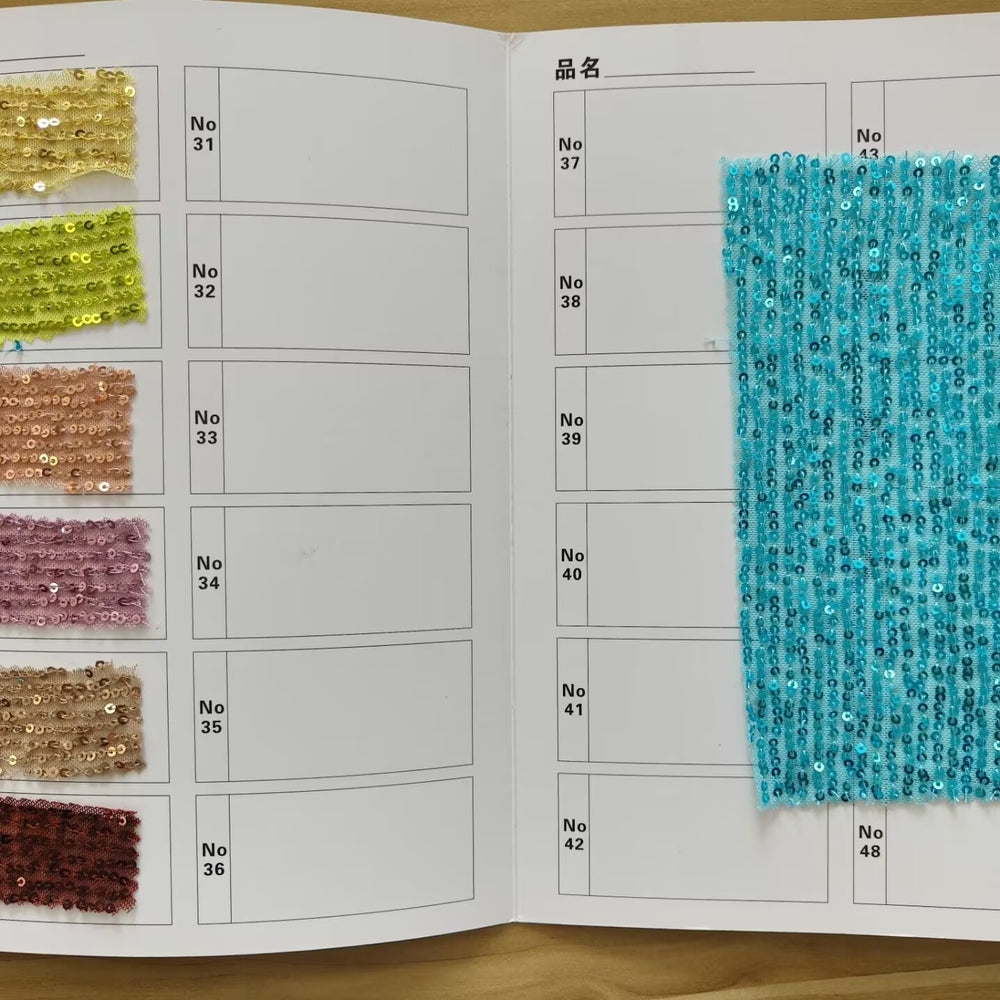 No
31
No
32
No
33
No
34
No
35
No
36
品名
No
37
No
38
No
39
No
40
No
41
No
42
No
43
No
48